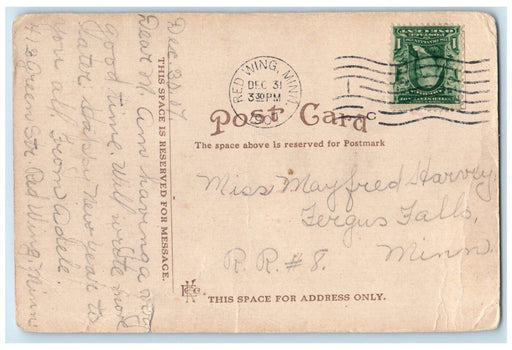 Dec 30 07
Dear M. Am having a very
good time. Will write more
later. Happy New Year to
you all. From Adele.
Green Str. Red Wing, Minn
THIS SPACE IS RESERVED FOR MESSAGE.
RED WING, MINN.
DEC 31
330 PM
1
Post Card
The space above is reserved for Postmark
Miss Mayfred Harvey,
Fergus Falls,
R.R. #8. Minn.
THIS SPACE FOR ADDRESS ONLY.